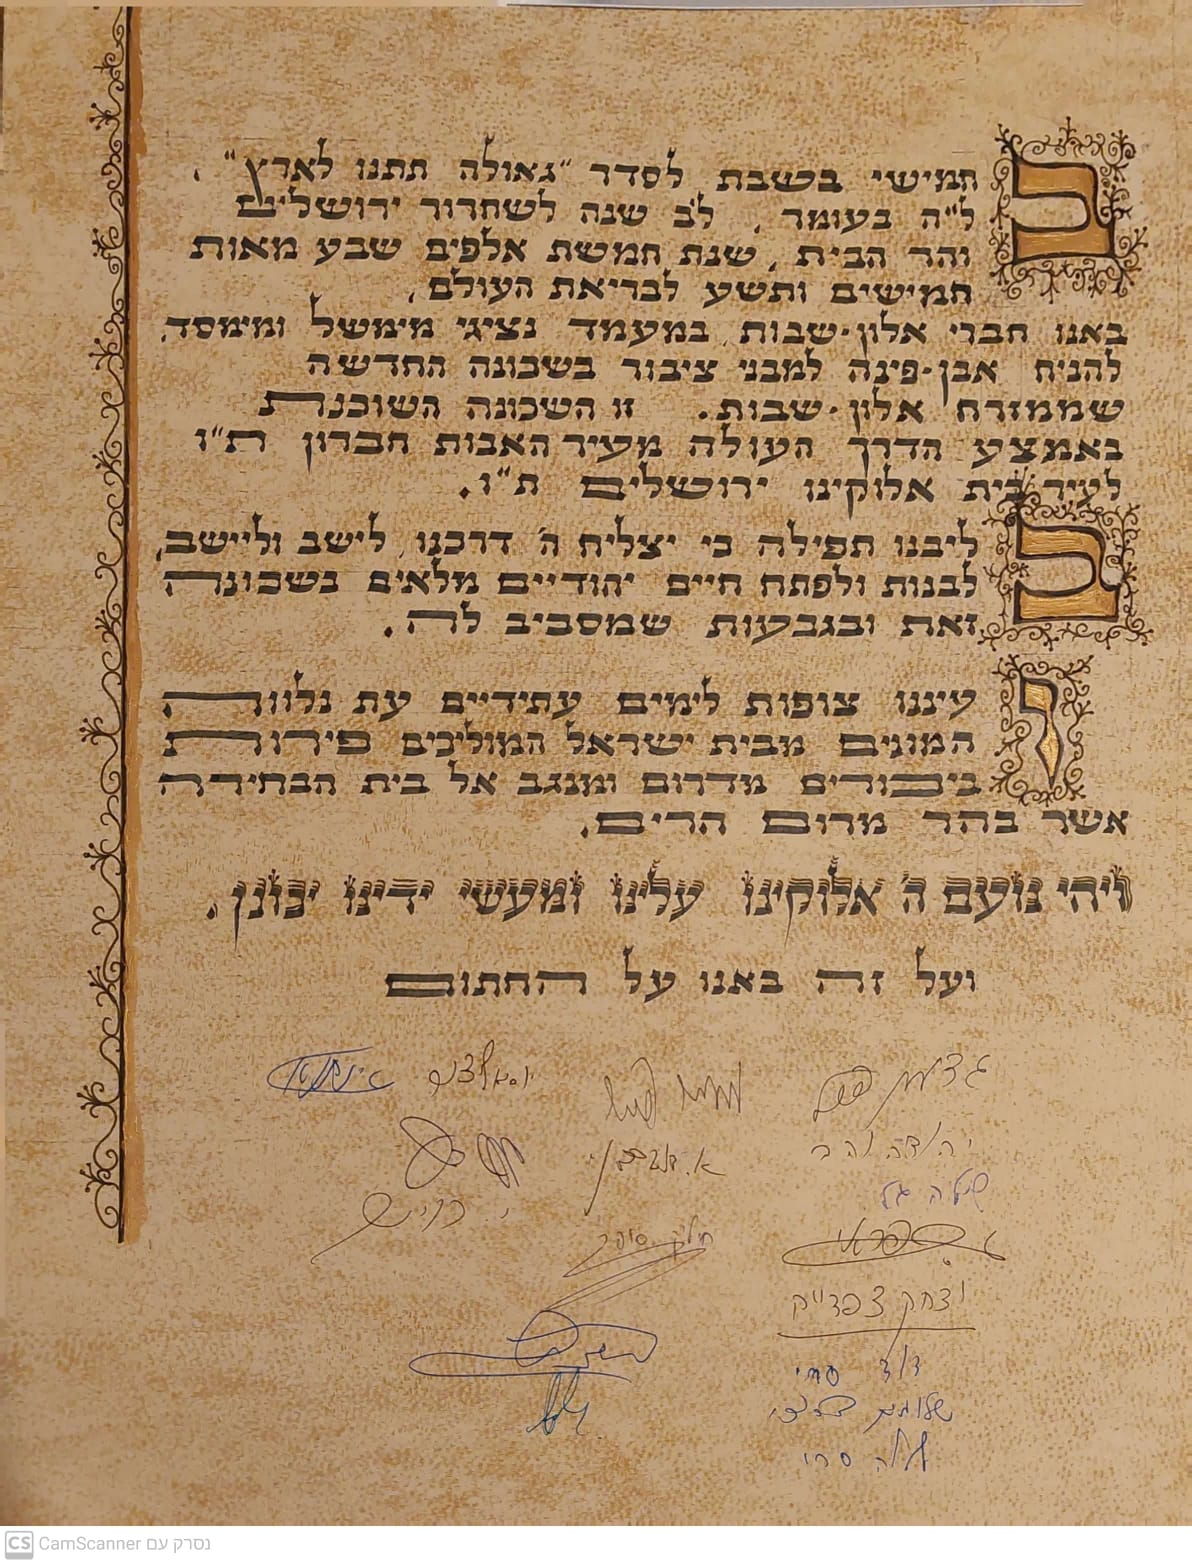 בחמישי בשבת לסדר "גאולה תתנו לארץ",
ל"ה בעומר, ל"ב שנה לשחרור ירושלים
והר הבית, שנת חמשת אלפים שבע מאות
חמישים ותשע לבריאת העולם,
באנו חברי אלון-שבות, במעמד נציגי מימשל ומימסד,
להניח אבן-פינה למבני ציבור בשכונה החדשה
שממזרח אלון-שבות. זו השכונה השוכנת
באמצע הדרך העולה מעיר האבות חברון ת"ו
לעיר בית אלוקינו ירושלים ת"ו.
בליבנו תפילה כי יצליח ה' דרכנו, לישב וליישב,
לבנות ולפתח חיים יהודיים מלאים בשכונה
זאת ובגבעות שמסביב לה.
ועיננו צופות לימים עתידיים עת נלווה
המונים מבית ישראל המוליכים פירות
ביכורים מדרום ומנגב אל בית הבחירה
אשר בהר מרום הרים.
ויהי נועם ה' אלוקינו עלינו ומעשי ידינו יכונן.
ועל זה באנו על החתום
יהודה והב
שילה גל
חיליק סופר
יצחק צפדייק
דוד
סרי
CS CamScanner נסרק עם